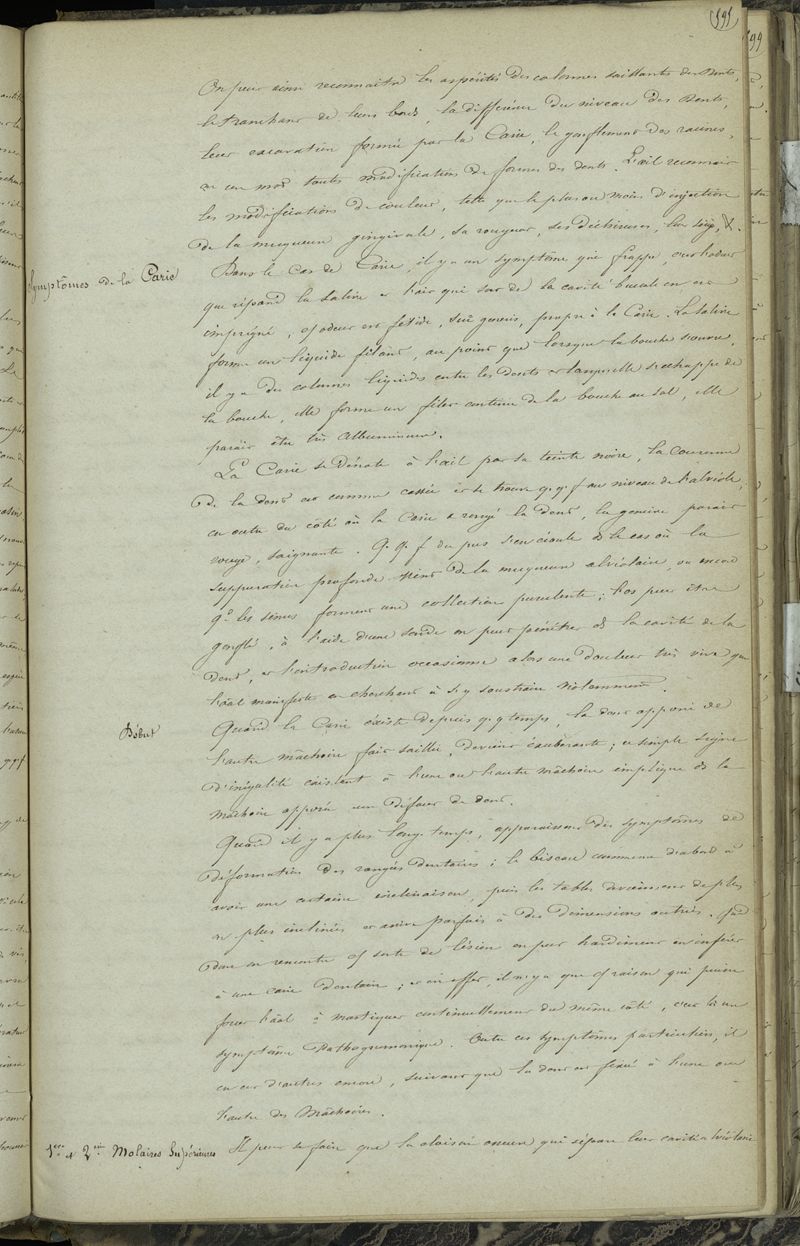 591
On peut ainsi reconnaitre les aspérités des colonnes saillantes des Dents,
le tranchant de leurs bords, la différence du niveau des Dents,
leur excavation formée par la Carie, le gonflement des racines,
en un mot toutes modifications de formes des dents. L'œil reconnait
les modifications de couleur, telle que le plus ou moins d'injection
de la muqueuse gingivale, sa rougeur, ses déchirures, leur siège, &.
Symptômes de la Carie
Dans le cas de Carie, il y a un symptôme qui frappe, c'est l'odeur
que répand la salive et l'air qui sort de la cavité buccale en est
imprégné, cette odeur est fétide, sui generis, propre à la Carie. La salive
forme un liquide filant, au point que lorsque la bouche s'ouvre,
il y a des colonnes liquides entre les Dents et lorsqu'elle s'échappe de
la bouche, elle forme un filet continu de la bouche au sol, elle
parait être très albumineuse.
La Carie se dénote à l'œil par sa teinte noire, la Couronne
de la dent est comme cassée et se trouve q.q.f au niveau de l'alvéole,
en outre du côté où la Carie a rongé la dent, la gencive parait
rouge, saignante. Q.q.f du pus s'en écoule ds le cas où la
suppuration profonde vient de la muqueuse alvéolaire, ou encore
qd les sinus forment une collection purulente; l'os peut être
gonflé, à l'aide d'une sonde on peut pénétrer ds la cavité de la
Dent, et l'introduction occasionne alors une douleur très vive que
l'aal manifeste en cherchant à s'y soustraire violemment.
Début
Quand la Carie existe depuis q.q temps, la dent opposée de
l'autre mâchoire fait saillie, devient exubérante; ce simple signe
d'inégalité existant à l'une ou l'autre mâchoire implique ds la
mâchoire opposée un défaut de dent.
Quand il y a plus long-temps, apparaissent des symptômes de
déformation des rangées dentaires; le biseau commence d'abord à
avoir une certaine inclinaison, puis les tables deviennent de plus
en plus inclinées et arrive parfois à des dimensions outrées. Qd
donc on rencontre cette sorte de lésion on peut hardiment en inférer
à une carie dentaire; et en effet, il n'y a que cette raison qui puisse
forcer l'aal à mastiquer continuellement du même côté, c'est là un
symptôme Pathognomonique. Outre ces symptômes particuliers, il
en est d'autres encore, suivant que la dent est fixée à l'une ou
l'autre des Mâchoires.
1ère et 2me Molaires Supérieures
Il peut se faire que la cloison osseuse qui sépare leur cavité alvéolaire